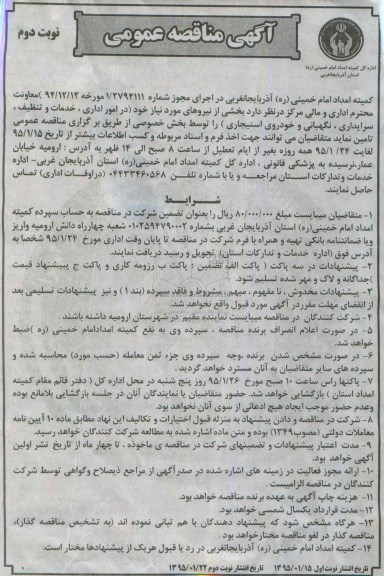 آگهی مناقصه عمومی
نوبت دوم
اداره کل کمیته امداد امام خمینی (ره)
استان آذربایجانغربی
کمیته امداد امام خمینی (ره) آذربایجانغربی در اجرای مجوز شماره ۱/۲۷۹۴۱۱۱ مورخه ۹۴/۱۲/۱۲ معاونت
محترم اداری و مالی مرکز درنظر دارد بخشی از نیروهای مورد نیاز خود (در امور اداری ، خدمات و تنظیف ،
سرایداری ، نگهبانی و خودروی استیجاری ) را توسط بخش خصوصی از طریق بر گزاری مناقصه عمومی
تامین نماید.متقاضیان می توانند جهت اخذ فرم و اسناد مربوطه و کسب اطلاعات بیشتر از تاریخ ۹۵/۱/۱۵
لغایت ۹۵/۱/۲۴ همه روزه بغیر از ایام تعطیل از ساعت ۸ صبح الی ۱۴ ظهر به آدرس : ارومیه خیابان
عمار،نرسیده به پزشکی قانونی ، اداره کل کمیته امداد امام خمینی(ره) استان آذربایجان غربی- اداره
خدمات و تدارکات استان مراجعه و یا با شماره تلفن ۰۴۴۳۳۴۶۰۵۶۸ (دراوقات اداری) تماس
حاصل نمایند.
شرایط
۱- متقاضیان میبایست مبلغ ۸۰/۰۰۰/۰۰۰ ریال را بعنوان تضمین شرکت در مناقصه به حساب سپرده کمیته
امداد امام خمینی(ره) استان آذربایجان غربی بشماره ۰۱۰۲۵۹۴۷۹۰۰۰۲ شعبه چهارراه دانش ارومیه واریز
ویا ضمانتنامه بانکی تهیه و همراه با فرم شرکت در مناقصه تا پایان وقت اداری مورخ ۹۵/۱/۲۴ شخصا به
آدرس فوق (اداره خدمات و تدارکات استان) تحویل و رسید دریافت نمایند.
۲- پیشنهادات در سه پاکت ( پاکت الف تضمین ؛ پاکت ب رزومه کاری و پاکت ج پیشنهاد قیمت
)جداگانه و لاک و مهر شده تسلیم شود.
۳- پیشنهادات مخدوش ، نا مفهوم ، مبهم ، مشروط و فاقد سپرده (بند ۱) و نیز پیشنهادات تسلیمی بعد
از انقضای مهلت مقرر در آگهی مورد قبول واقع نخواهد شد.
۴- شرکت کنندگان در مناقصه میبایست نماینده مقیم در شهرستان ارومیه داشته باشند .
۵- در صورت اعلام انصراف برنده مناقصه ، سپرده وی به نفع کمیته امدادامام خمینی (ره )ضبط
خواهد شد.
۶- در صورت مشخص شدن برنده ،وجه سپرده وی جزء ثمن معامله (حسب مورد) محاسبه شده و
سپرده های سایر متقاضیان به آنان مسترد خواهد گردید .
۷- پاکتها راس ساعت ۱۰ صبح مورخ ۹۵/۱/۲۶ روز پنج شنبه در محل اداره کل ( دفتر قائم مقام کمیته
امداد استان ) بازگشایی خواهد شد. حضور متقاضیان یا نمایندگان آنان در جلسه بازگشایی بلامانع بوده
وعدم حضور موجب ایجاد هیچ ادعائی از سوی آنان نخواهد بود.
۸- شرکت در مناقصه و دادن پیشنهاد به منزله قبول اختیارات و تکالیف این نهاد مطابق ماده ۱۰ آیین نامه
معاملات دولتی (مصوب۱۳۴۹) بوده و متن ماده اشاره شده به مطالعه شرکت کنندگان خواهد رسید.
۹- مدت اعتبار پیشنهادات و تضمینهای شرکت در مناقصه ی ماخوذه ، تا چهار ماه از تاریخ نشر اولین
آگهی خواهد بود.
۱۰- ارائه مجوز فعالیت در زمینه های اشاره شده در صدرآگهی از مراجع ذیصلاح وگواهی توسط شرکت
کنندگان در مناقصه الزامیست .
۱۱- هزینه چاپ آگهی به عهده برنده مناقصه خواهد بود.
۱۲- مدت قرارداد یکسال شمسی خواهد بود.
۱۳- هرگاه مشخص شود که پیشنهاد دهندگان با هم تبانی نموده اند (به تشخیص مناقصه گذار)،
مناقصه گذار در لغو مناقصه مختارخواهد بود.
۱۴- کمیته امداد امام خمینی (ره) آذربایجانغربی در رد یا قبول هریک از پیشنهادها مختار است.
تاریخ انتشار نوبت اول ۱۳۹۵/۰۱/۱۵ تاریخ انتشار نوبت دوم ۱۳۹۵/۰۱/۲۲